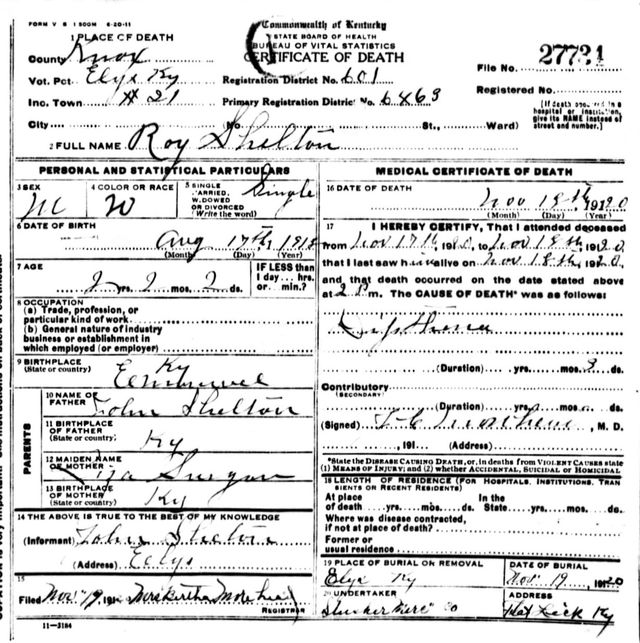 FORM V S 1 500M 6-20-11
Commonwealth of Kentucky
STATE BOARD OF HEALTH
BUREAU OF VITAL STATISTICS
CERTIFICATE OF DEATH
1 PLACE OF DEATH
County Knox
Vot. Pct Elys Ky
Inc. Town # 21
City
Registration District No. 601
Primary Registration District No. 6463
No. St., Ward)
File No. 27731
Registered No.
(If death occurred in a hospital or institution, give its NAME instead of street and number.)
2 FULL NAME Roy Shelton
PERSONAL AND STATISTICAL PARTICULARS
3 SEX M
4 COLOR OR RACE W
5 SINGLE MARRIED, WIDOWED OR DIVORCED (Write the word) Single
6 DATE OF BIRTH
Aug 17th, 1918
(Month) (Day) (Year)
7 AGE
2 yrs. 2 mos. 2 ds.
IF LESS than 1 day... hrs. or min.?
8 OCCUPATION
(a) Trade, profession, or particular kind of work
(b) General nature of industry business or establishment in which employed (or employer)
9 BIRTHPLACE (State or country) Ky
10 NAME OF FATHER John Shelton
11 BIRTHPLACE OF FATHER (State or country) Ky
12 MAIDEN NAME OF MOTHER
13 BIRTHPLACE OF MOTHER (State or country) Ky
PARENTS
14 THE ABOVE IS TRUE TO THE BEST OF MY KNOWLEDGE
(Informant) John Shelton
(Address) Elys
15
Filed Nov 19, 191 Mrs Bertha Morehead
REGISTRAR
11-3184
MEDICAL CERTIFICATE OF DEATH
16 DATE OF DEATH
Nov 18th 1920
(Month) (Day) (Year)
17 I HEREBY CERTIFY, That I attended deceased
from Nov 17th, 1920, to Nov 18th, 1920,
that I last saw him alive on Nov 18th, 1920,
and that death occurred on the date stated above
at 2 P.m. The CAUSE OF DEATH* was as follows:
(Duration) yrs. mos. ds.
Contributory
(SECONDARY)
(Duration) yrs. mos. ds.
(Signed) M. D.
, 191 (Address)
*State the DISEASE CAUSING DEATH, or, in deaths from VIOLENT CAUSES state (1) MEANS OF INJURY; and (2) whether ACCIDENTAL, SUICIDAL or HOMICIDAL
18 LENGTH OF RESIDENCE (FOR HOSPITALS, INSTITUTIONS, TRANSIENTS OR RECENT RESIDENTS)
At place of death yrs. mos. ds. In the State yrs. mos. ds.
Where was disease contracted, if not at place of death?
Former or usual residence
19 PLACE OF BURIAL OR REMOVAL
Elys Ky
DATE OF BURIAL
Nov 19, 1920
20 UNDERTAKER
ADDRESS
Flat Lick Ky